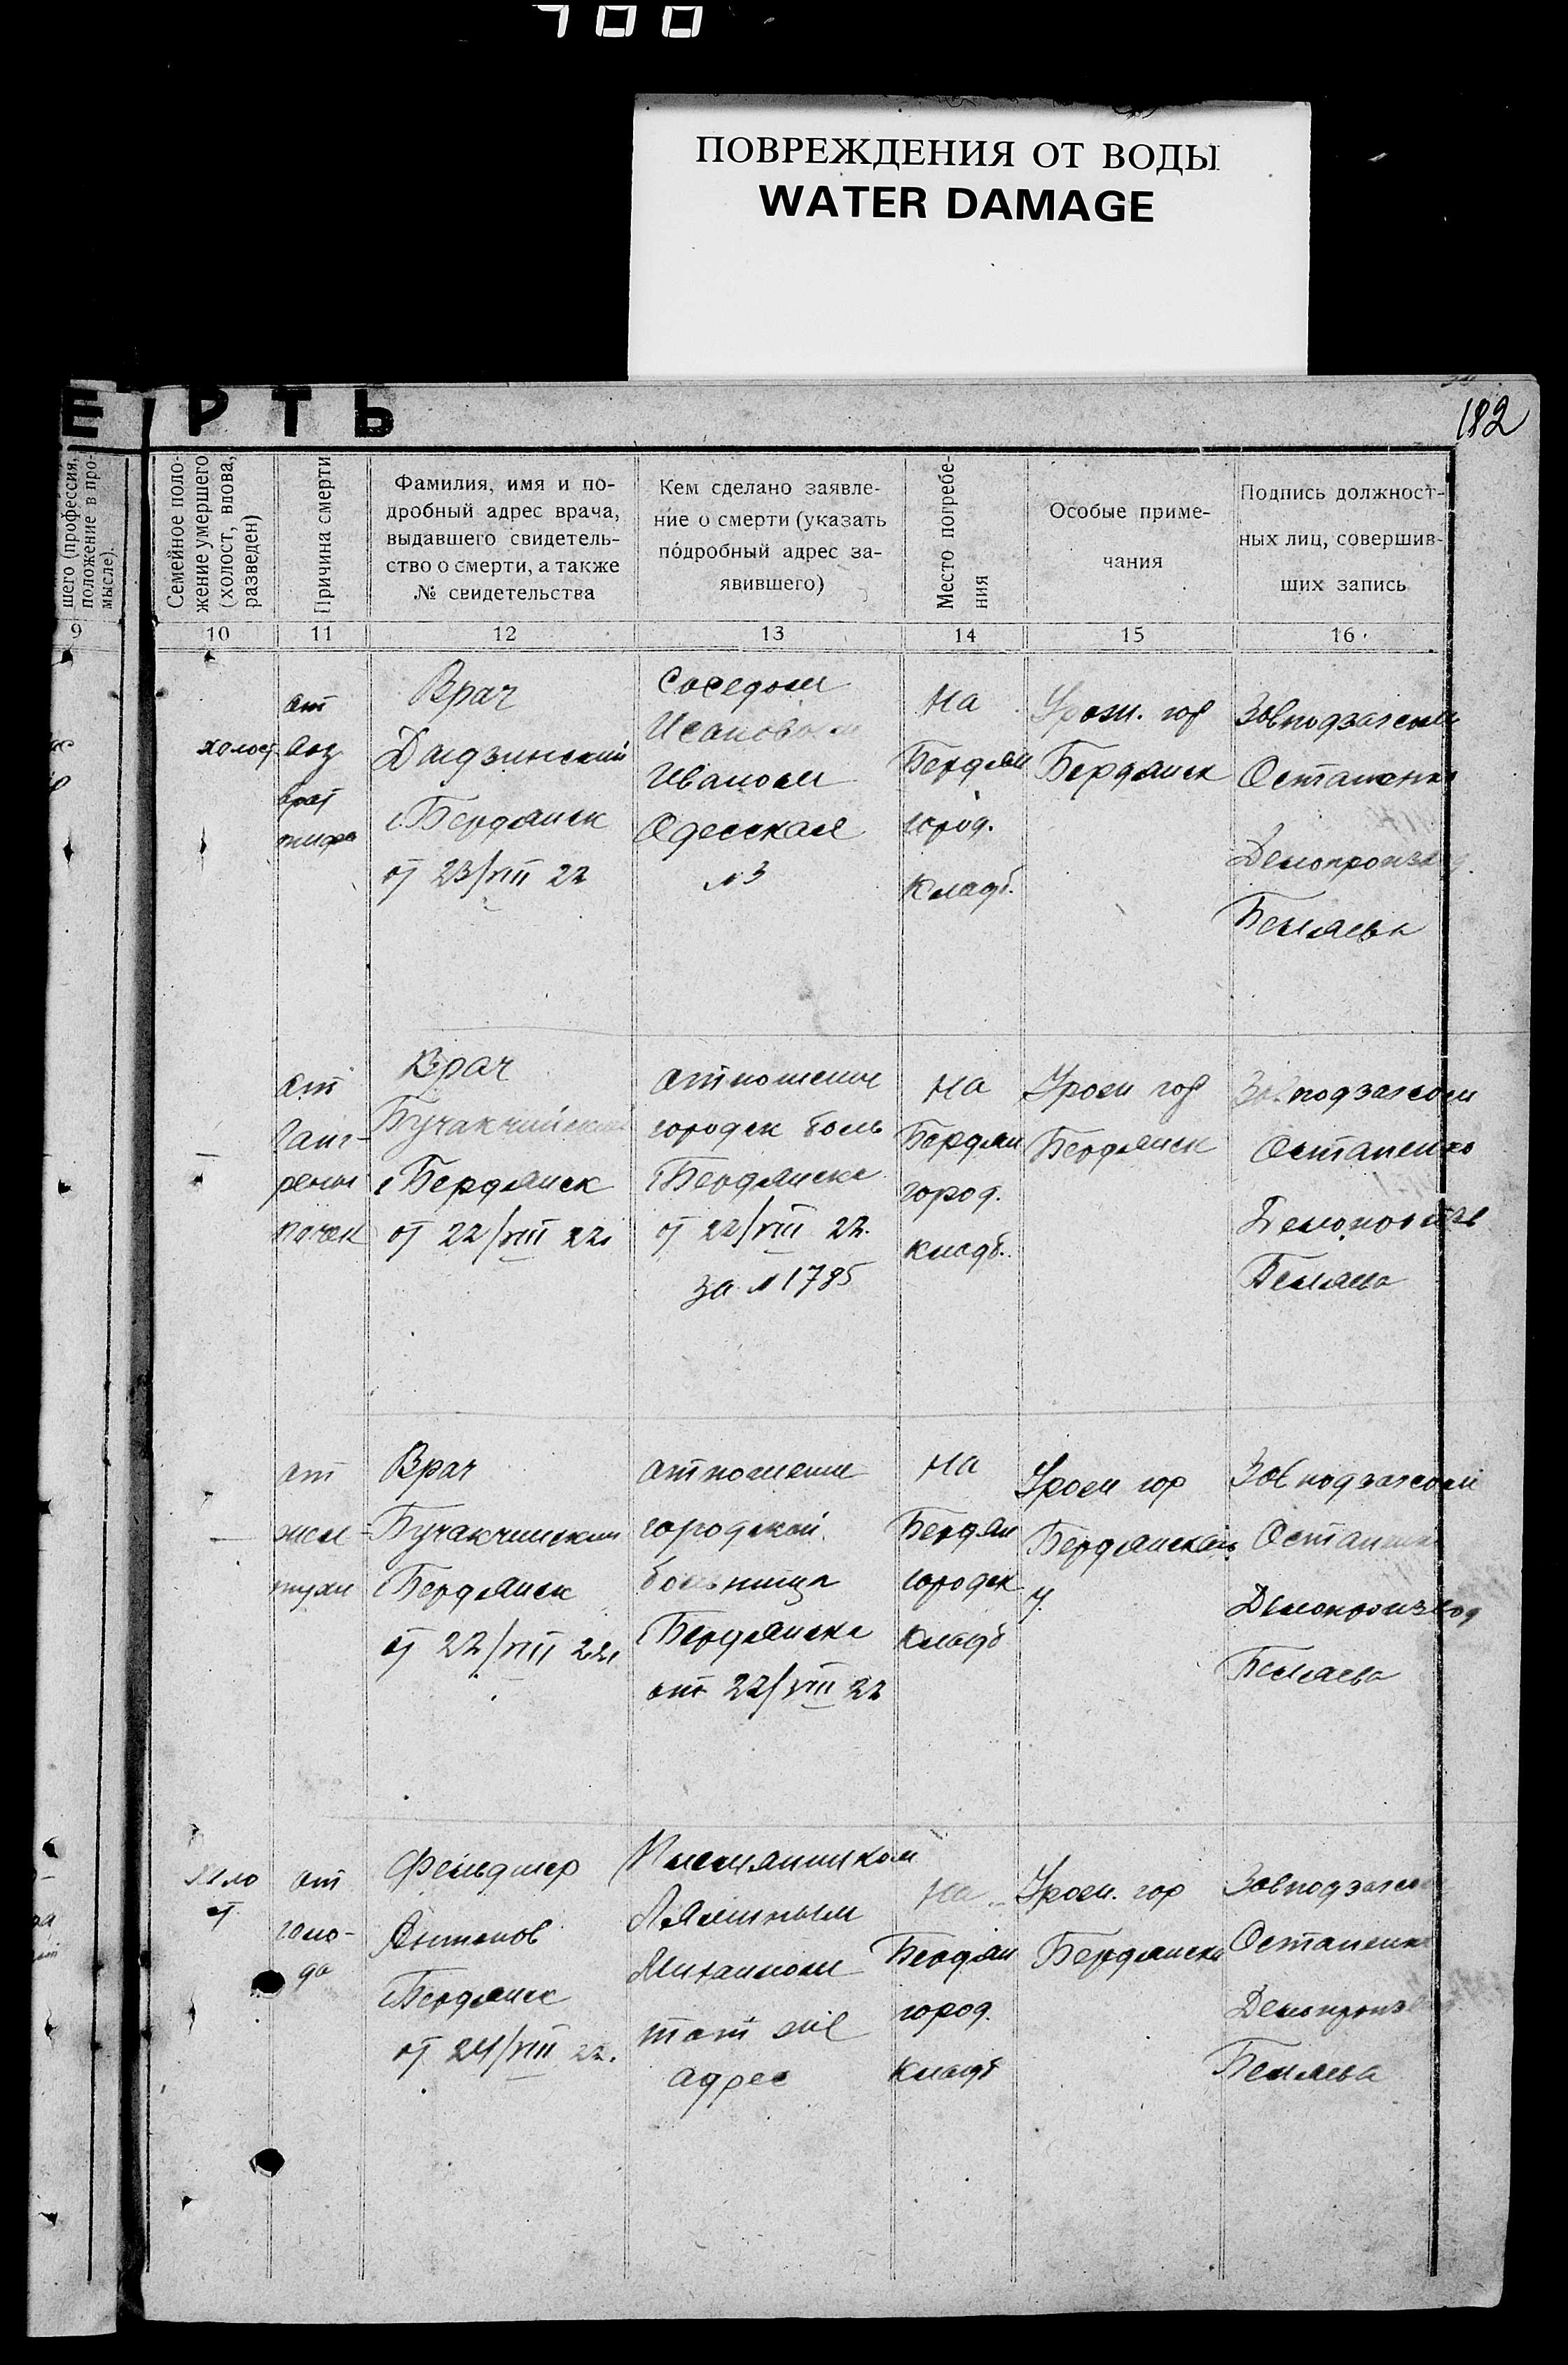 700
ПОВРЕЖДЕНИЯ ОТ ВОДЫ
WATER DAMAGE
ЕРТЬ
182
шего (профессия,
положение в про-
мысле).
Семейное поло-
жение умершего
(холост, вдова,
разведен)
Причина смерти
Фамилия, имя и по-
дробный адрес врача,
выдавшего свидетель-
ство о смерти, а также
№ свидетельства
Кем сделано заявле-
ние о смерти (указать
подробный адрес за-
явившего)
Место погребе-
ния
Особые приме-
чания
Подпись должност-
ных лиц, совершив-
ших запись
9
10
11
12
13
14
15
16
холост
от
воз
врат
тифа
Врач
Дзинский
г. Бердянск
от 23/VIII 22
Соседом
Иваном
Одесская
№ 3
На
Бердян
город.
кладб.
Урож. гор
Бердянск
Завподзагсом
Остапенко
Делопроизвод.
Беляева
от
Ганг-
рены
почек
Врач
Бучакчийский
г. Бердянск
от 22/VIII 22
отношение
городск боль
г. Бердянска
от 22/VIII 22.
за № 1785
На
Бердян
город.
кладб.
Урож гор
Бердянск
Завподзагсом
Остапенко
Беляева
от
Врач
Бучакчийский
г. Бердянск
от 22/VIII 22
отношение
городской
больница
г. Бердянска
от 22/VIII 22
На
Бердян
городск
кладб
Урож гор
Бердянской
у.
Завподзагсом
Остапенко
Делопроизвод
Беляева
холо
ст
от
голо-
да
Фельдшер
Антонов
г. Бердянск
от 24/VIII 22.
Племянником
Михаилом
тот же
адрес
На
Бердян
город.
кладб
Урож. гор
Бердянска
Завподзагсом
Остапенко
Делопроизвод
Беляева